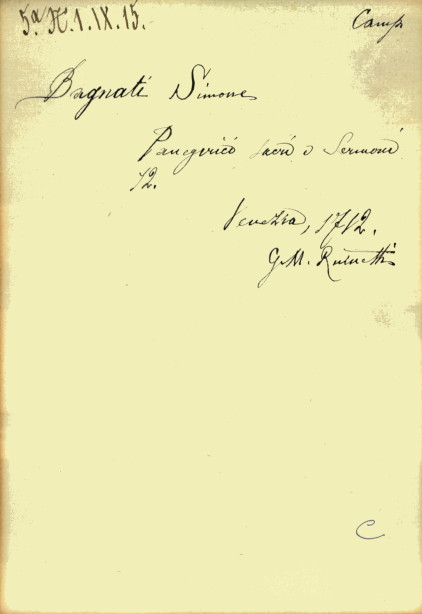 5.ª H.1.IX.15.
Camp
Bagnati Simone
Panegirici sacri e Sermoni
12.
Venezia, 1712.
G.M. Ruinetti
C